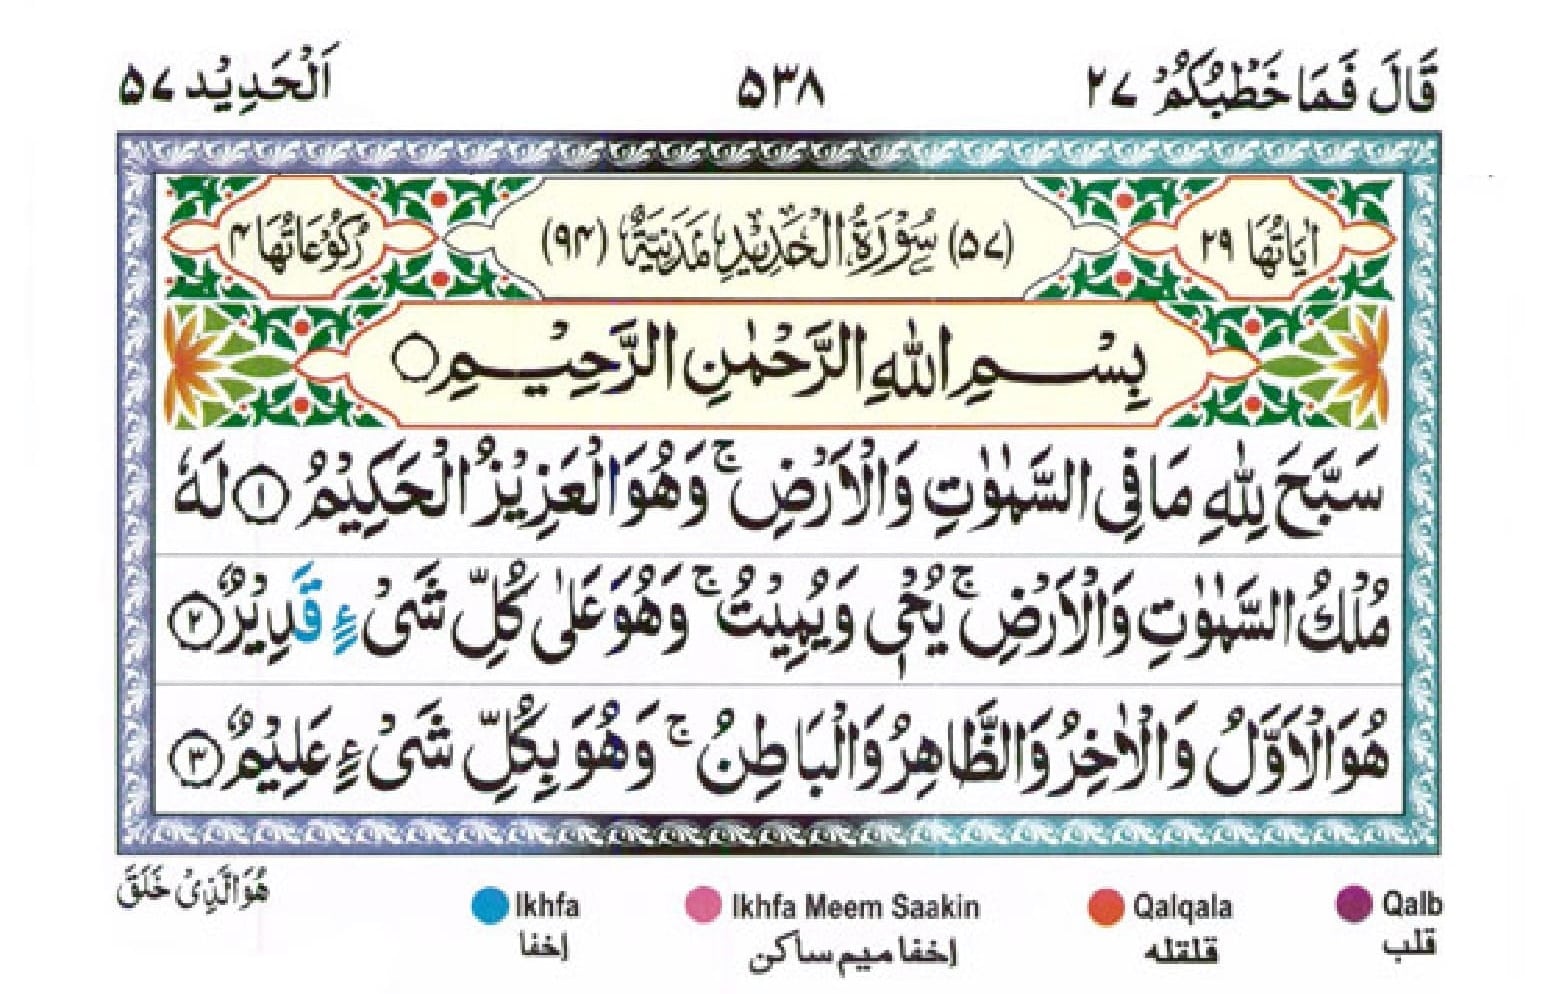 قَالَ فَمَا خَطْبُكُمْ ٢٧ ٥٣٨ اَلْحَدِيْد ٥٧
اٰيَاتُهَا ٢٩ (٥٧) سُوْرَةُ الْحَدِيْدِ مَدَنِيَّةٌ (٩٤) رُكُوْعَاتُهَا ٤
بِسْمِ اللّٰهِ الرَّحْمٰنِ الرَّحِيْمِ
سَبَّحَ لِلّٰهِ مَا فِى السَّمٰوٰتِ وَالْاَرْضِ ۚ وَهُوَ الْعَزِيْزُ الْحَكِيْمُ ١ لَهٗ
مُلْكُ السَّمٰوٰتِ وَالْاَرْضِ ۚ يُحْىٖ وَيُمِيْتُ ۚ وَهُوَ عَلٰى كُلِّ شَىْءٍ قَدِيْرٌ ٢
هُوَ الْاَوَّلُ وَالْاٰخِرُ وَالظَّاهِرُ وَالْبَاطِنُ ۚ وَهُوَ بِكُلِّ شَىْءٍ عَلِيْمٌ ٣
هُوَ الَّذِىْ خَلَقَ
Ikhfa Ikhfa Meem Saakin Qalqala Qalb
اخفا اخفا میم ساکن قلقله قلب